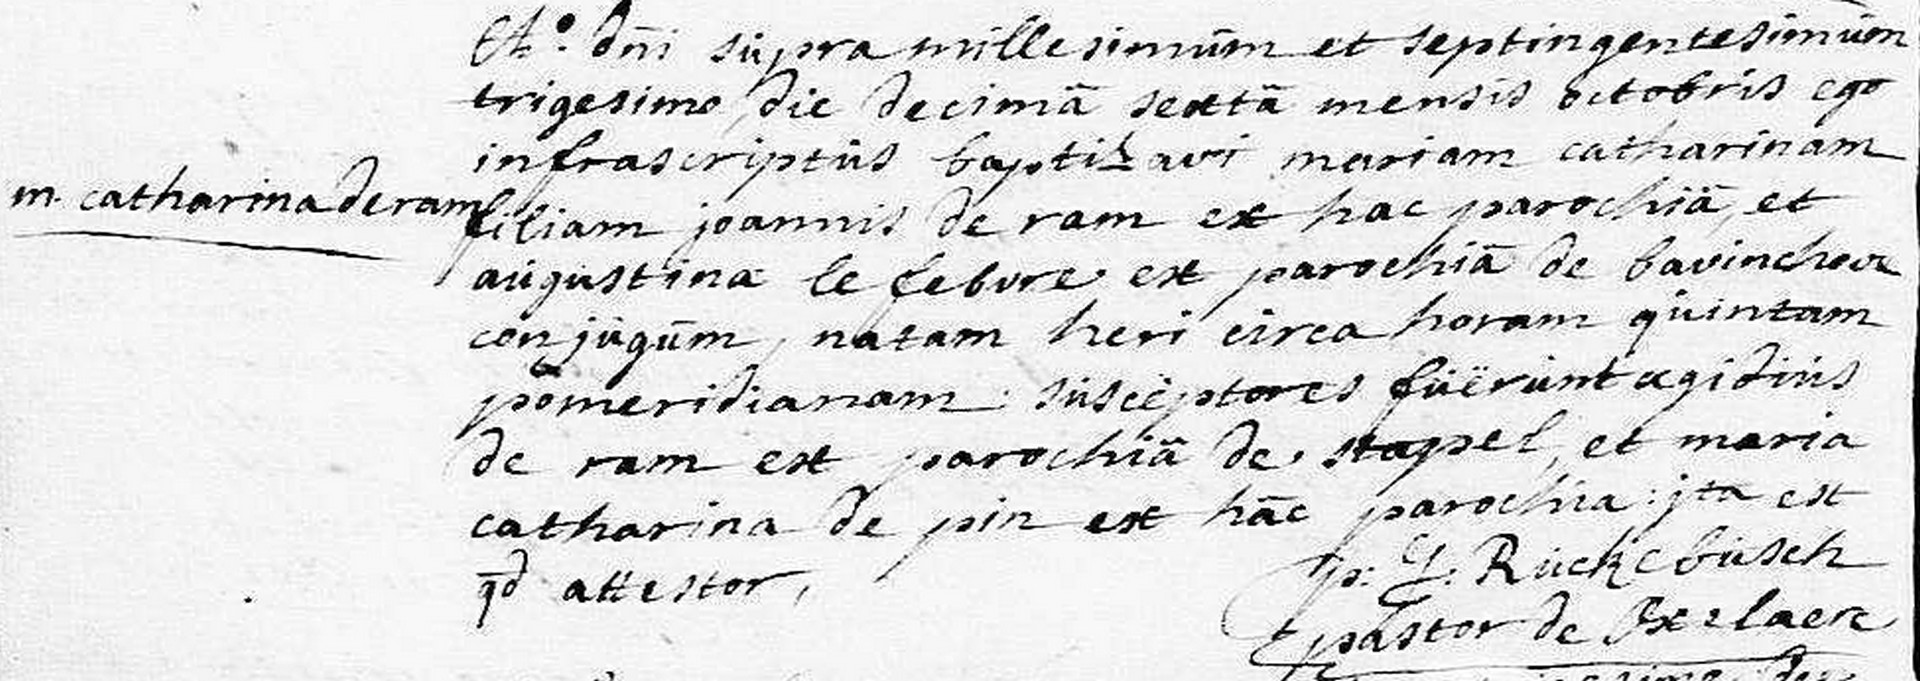 Aº. dñi supra millesimum et septingentesimum
trigesimo, die decimâ sextâ mensis octobris ego
infrascriptus baptizavi mariam catharinam
m. catharina de ram
filiam joannis de ram ex hac parochiâ, et
augustinæ le febvre ex parochiâ de bavinchove
conjugum, natam heri circa horam quintam
põmeridianam: susceptores fuërunt ægidius
de ram ex parochiâ de stapel, et maria
catharina de pin ex hâc parochia: jta est
qd attestor,
p: J. Ruckebusch
pastor de Oxelaere